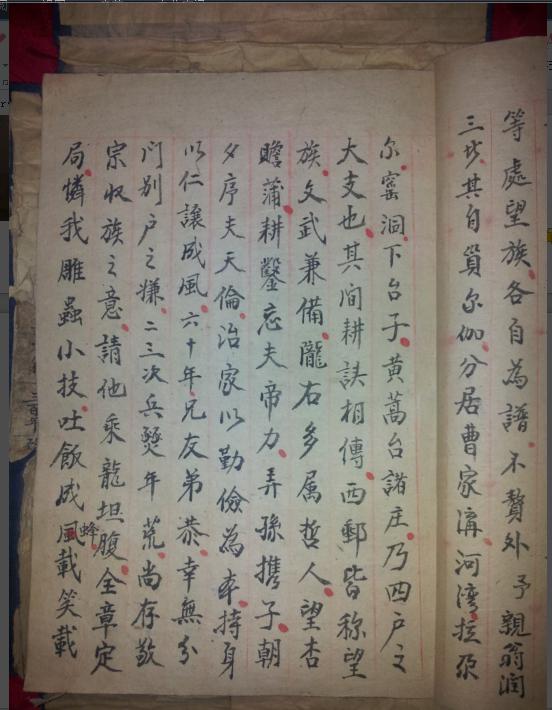 等處望族各自為譜不贅外予親翁潤
三其自尔伽分居曹家溝河灣拉尕
尔窰洞下台子黃蒿台諸庄乃四户之
大支也其间耕讀相傳西郵皆稱望
族文武兼備隴右多属哲人望杏
瞻蒲耕鑿忘夫帝力弄孫携子朝
夕序夫天倫治家以勤儉為本持身
以仁讓成風六十年兄友弟恭幸無分
门别户之嫌二三次兵燹年荒尚存敬
宗收族之意請他乘龍坦腹全章定
局憐我雕蟲小技吐飯成風蜂載笑載